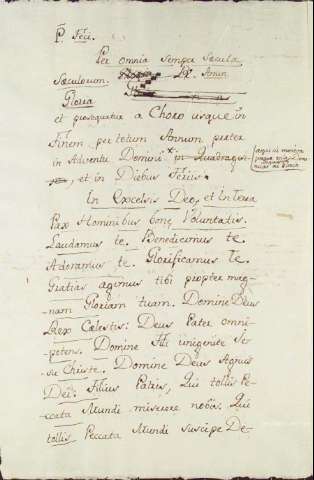 P. Feri.
Per omnia semper sæcula
Sæculorum. R. Amen
Gloria
et prosequatur a Choro usque in
Finem per totum Annum præter
in Adventu Domini
et in Diebus Feriis.
In Excelsis Deo, et In terra
Pax Hominibus bonę Voluntatis.
Laudamus te. Benedicimus te.
Adoramus te. Glorificamus te.
Gratias agimus tibi propter mag-
nam Gloriam tuam. Domine Deus
Rex Cælestis: Deus Pater omni-
potens. Domine Fili unigenite Je-
su Christe. Domine Deus Agnus
Dei. Filius Patris, Qui tollis Pe-
ccata Mundi miserere nobis. Qui
tollis Peccata Mundi suscipe De-